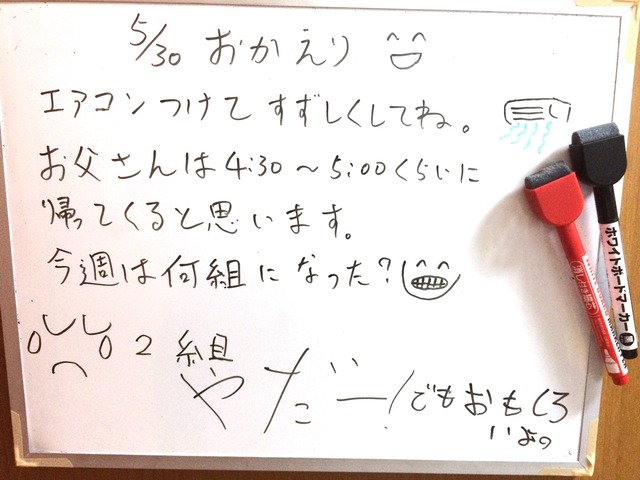 5/30 おかえり
エアコンつけてすずしくしてね。
お父さんは4:30～5:00くらいに
帰ってくると思います。
今週は何組になった?
2組
やだー!でもおもしろ
いよ。
ホワイトボードマーカー